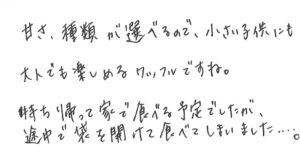 甘さ、種類が選べるので、小さい子供にも
大人でも楽しめるワッフルですね。
持ち帰って家で食べる予定でしたが、
途中で袋を開けて食べてしまいました…。